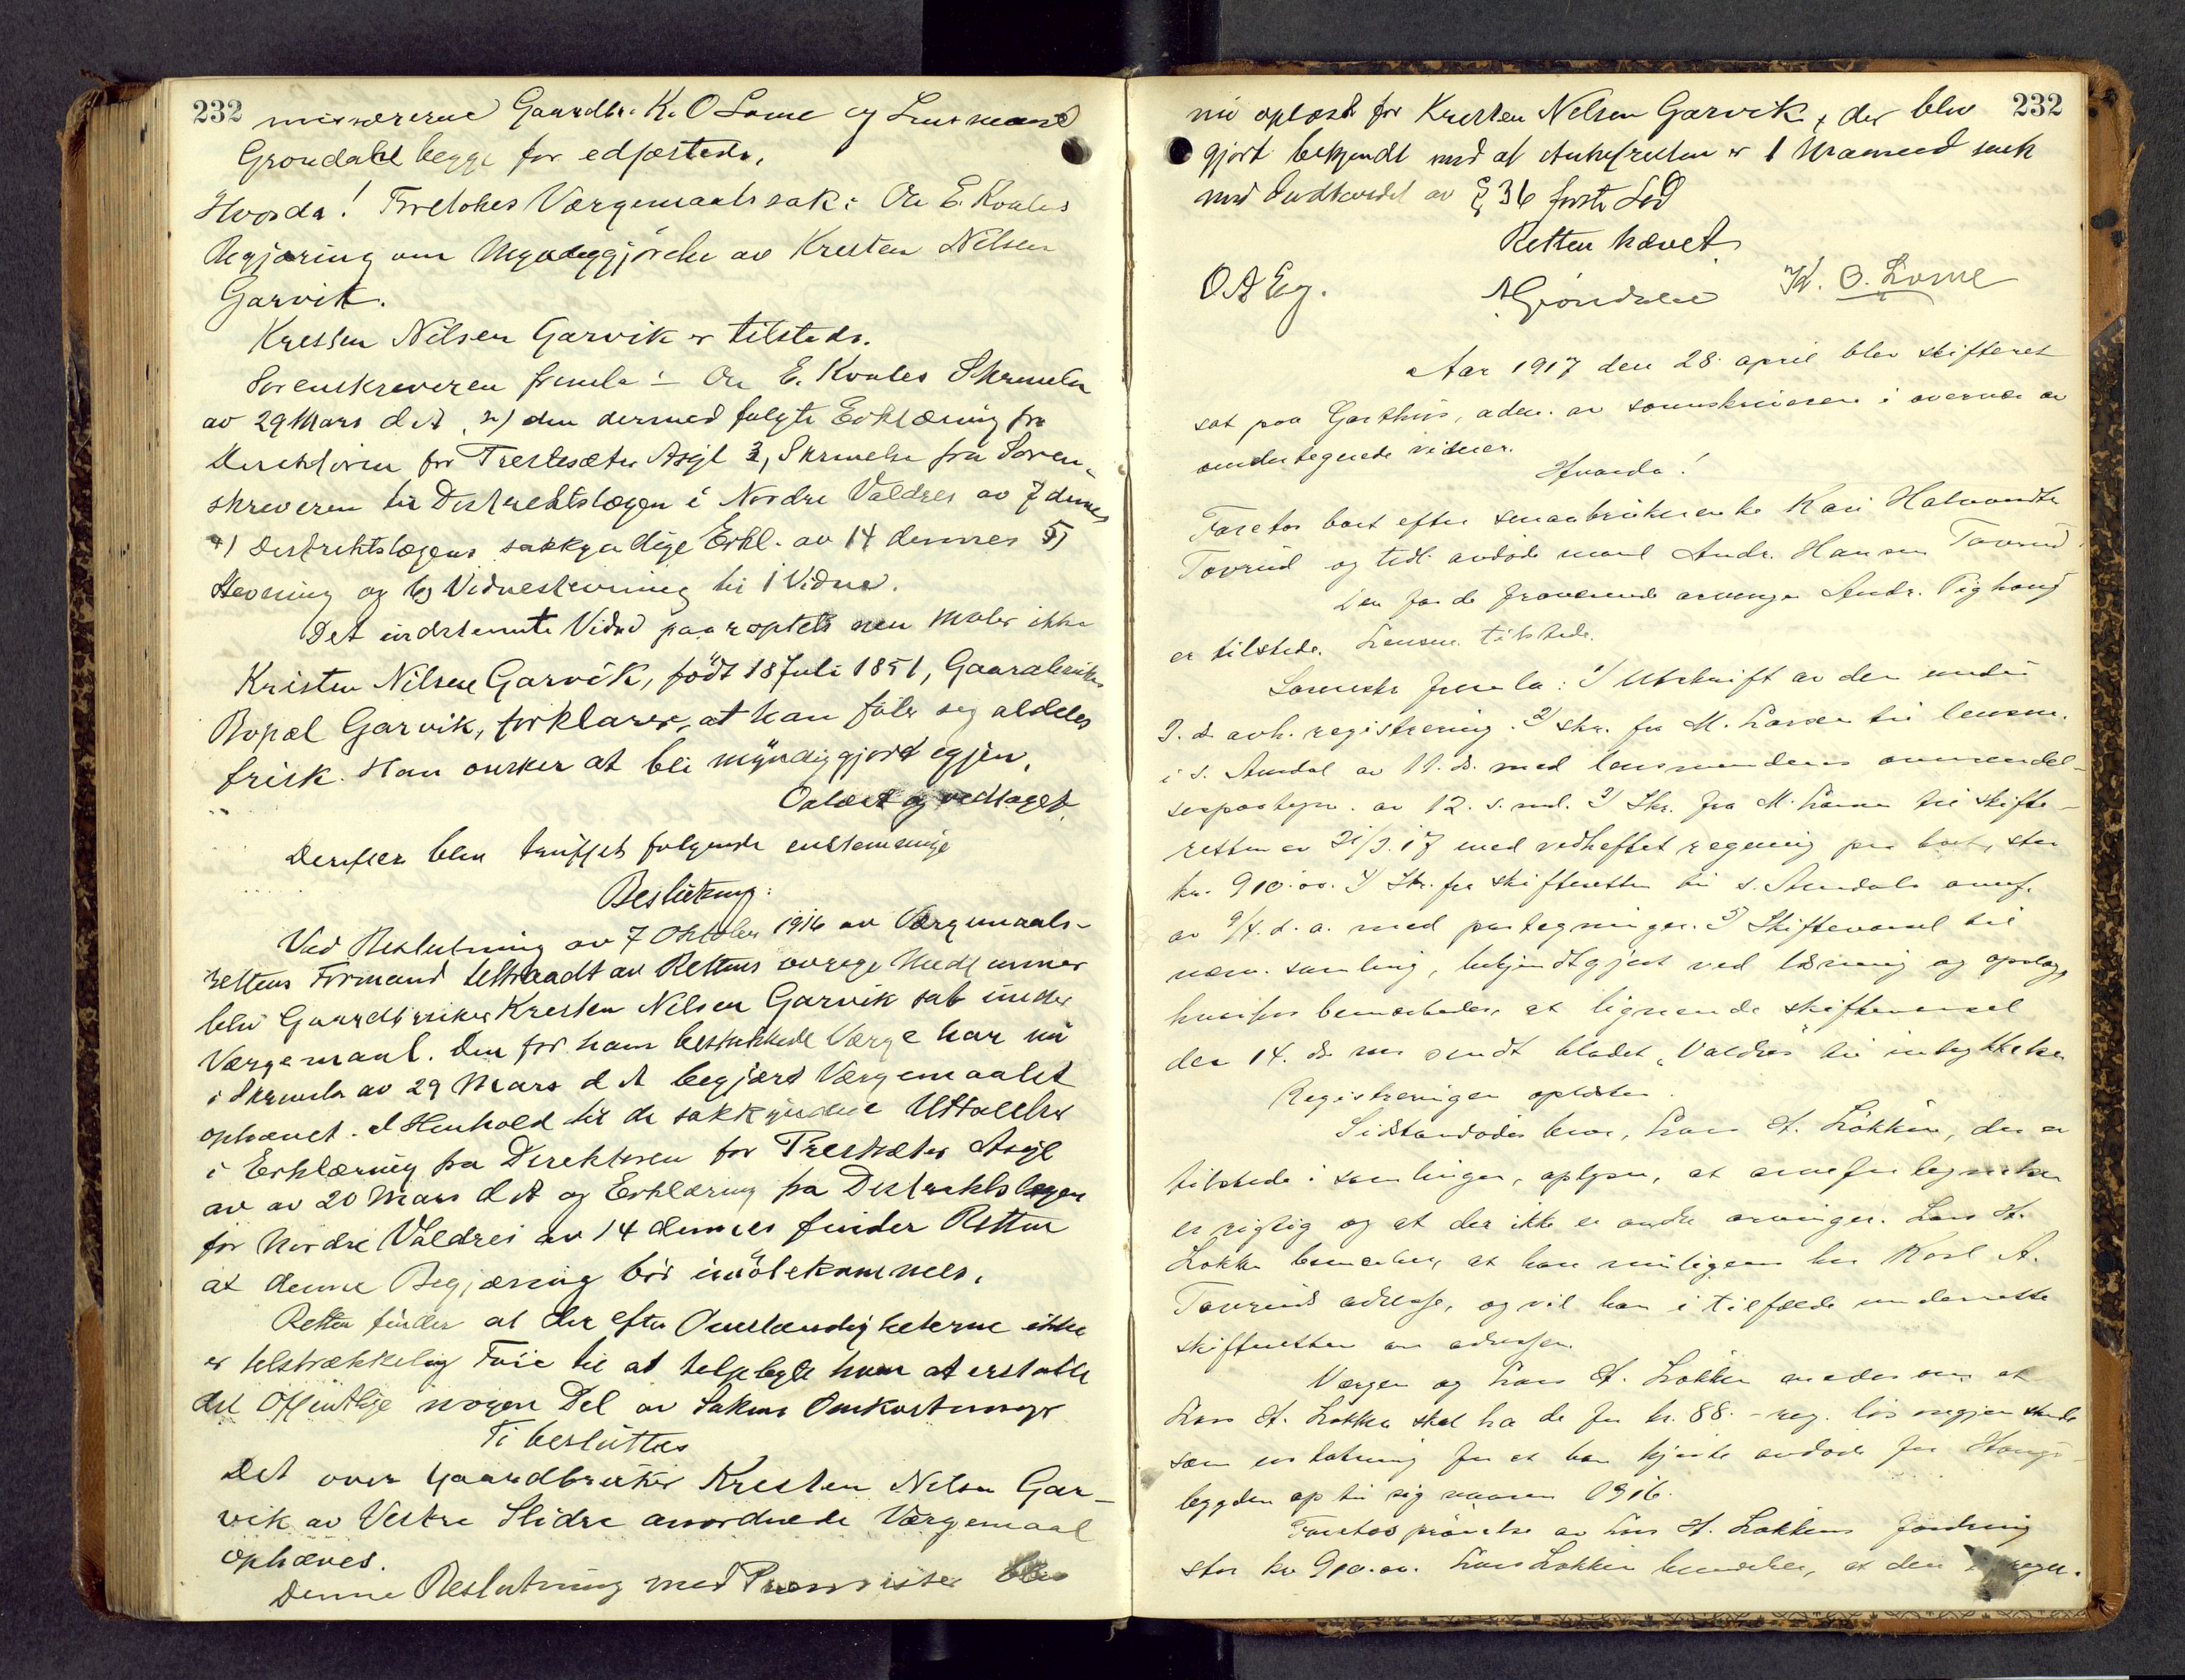 232
Gaardbr. K. O Lome og Lensmand
Grøndahl begge før edfæstede.
Hvorda! Foretokes Værgemaalssak: Ole E. Kvales
Begjæring om Myndiggjørelse av Kristen Nilsen
Garvik.
Kristen Nilsen Garvik er tilstede.
Sorenskriveren fremla: Ole E. Kvales Skrivelse
av 29 Mars d A, 2) den dermed fulgte Erklæring fra
Direktøren for Presteseter Asyl 3, Skrivelse fra Soren-
skriveren til Distriktslægen i Nordre Valdres av 7 dennes
4) Distriktslægens sakkyndige Erkl. av 14 dennes 5)
Stevning og 6) Vidnestevning til 1 Vidne.
Det indstevnte Vidne paaroptes men møter ikke
Kristen Nilsen Garvik, født 18 Juli 1851, Gaardbruker
Bopæl Garvik, forklarer, at han føler seg aldeles
frisk. Han ønsker at bli myndiggjord egjen.
Oplæst og vedtaget.
Derefter blev truffet følgende enstemmige
Beslutning:
Ved Beslutning av 7 Oktober 1916 av Værgemaals-
rettens Formand tiltraadt av Rettens øvrige Medlemmer
blev Gaardbruker Kristen Nilsen Garvik sat under
Værgemaal. Den for ham beskikkede Værge har nu
i Skrivelse av 29 Mars d A begjært Værgemaalet
ophævet. I Henhold til de sakkyndige Uttalelser
i Erklæring fra Direktøren for Presteseter Asyl
av av 20 Mars d A og Erklæring fra Distriktslægen
for Nordre Valdres av 14 dennes finder Retten
at denne Begjæring bør imøtekommes.
Retten finder at der efter Omstændigheterne ikke
er tilstrækkelig Føie til at tilpligte ham at erstatte
det Offentlige nogen Del av Sakens Omkostninger
Ti besluttes
Det over Gaardbruker Kristen Nilsen Gar-
vik av Vestre Slidre anordnede Værgemaal
ophæves.
Denne Beslutning med Præmisser blev
232
nu oplæst for Kristen Nilsen Garvik, der blev
gjort bekjendt med at Ankefristen er 1 Maaned
med av § 36 første Led
Retten hævet
O A Eng. A Grøndahl K. O. Lome
Aar 1917 den 28 april blev skifteret
sat paa Garthus, adm. av sorenskriveren i overvær av
undertegnede vidner.
Hvorda!
Foretos boet efter smaabrukerenke Kari Halvorsdtr
Tovrud og tidl. avdøde mand Andr. Hansen Tovrud.
Den for de fraværende arvinger Andr.
er tilstede. Lensm. tilstede.
Sorenskr. fremla: 1) Utskrift av den under
3. ds avh. registrering. 2) Skr. fra M. Larsen til lensm.
i S. Aurdal av 11. ds. med lensmandens
av 12. s. md. 3) Skr. fra M. Larsen til skifte-
retten av 21/3.17 med vedheftet regning paa boet, stor
kr. 910.00. 4) Skr. fra skifteretten til S. Aurdals
av 9/4. d. a. med paategninger. 5) Skiftevarsel til
nærv. samling, bekjendtgjort ved læsning og opslag,
hvorfor bemerkedes, at lignende skiftevarsel
den 14. ds var sendt bladet "Valdres" til indrykkelse.
Registreringen oplæstes.
Sidstavdødes bror, Lars H. Løkken, der er
tilstede i samlingen, oplyser, at
er rigtig og at der ikke er andre arvinger. Lars H.
Løkken bemerker, at han muligens har Karl A.
Tovruds adresse, og vil han i tilfælde underrette
skifteretten om adressen.
Værgen og Lars H. Løkken enedes om at
Lars H. Løkken skal ha de for kr. 88.-
som erstatning for at han kjørte avdøde fra
bygden op til sig vaaren 1916.
Foretos prøvelse av Lars H. Løkkens fordring
stor kr 910.00. Lars Løkken bemerker, at den